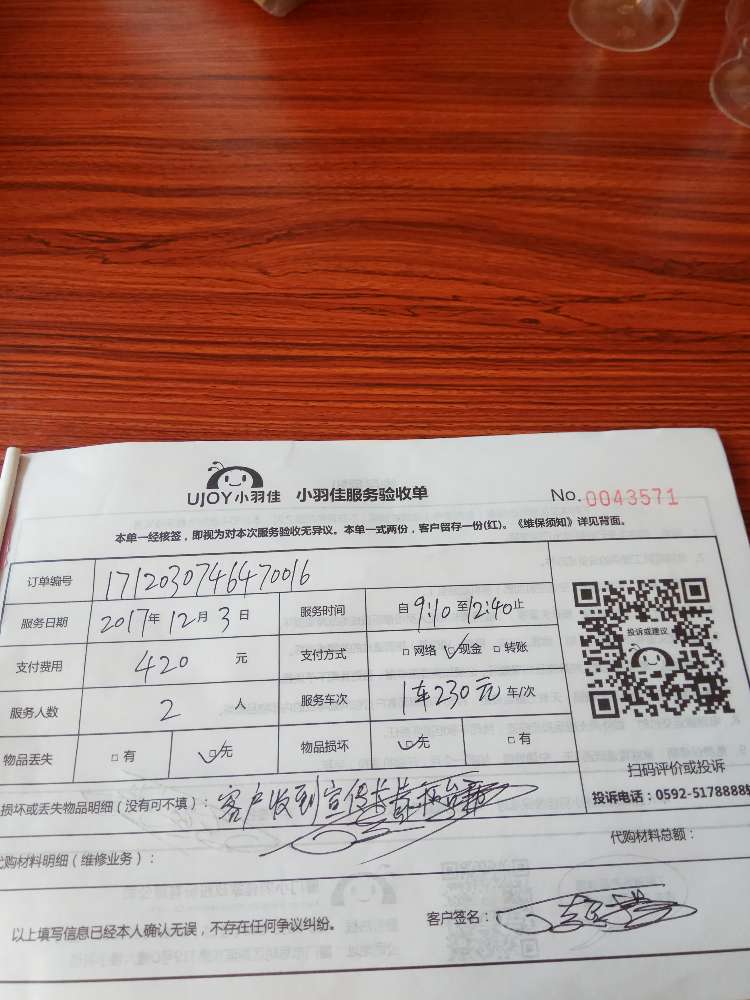 UJOY小羽佳 小羽佳服务验收单 No.0043571
本单一经接签，即视为对本次服务验收无异议。本单一式两份，客户留存一份(红)。《维保须知》详见背面。
订单编号 17120307464470016
服务日期 2017年12月3日 服务时间 自9:10至12:40止
投诉或建议
支付费用 420元 支付方式 □网络 ☑现金 □转账
服务人数 2人 服务车次 1车230元 车/次
物品丢失 □有 ☑无 物品损坏 ☑无 □有
扫码评价或投诉
损坏或丢失物品明细（没有可不填）：客户收到宣传卡
投诉电话：0592-5178888
代购材料明细（维修业务）： 代购材料总额：
以上填写信息已经本人确认无误，不存在任何争议纠纷。 客户签名：